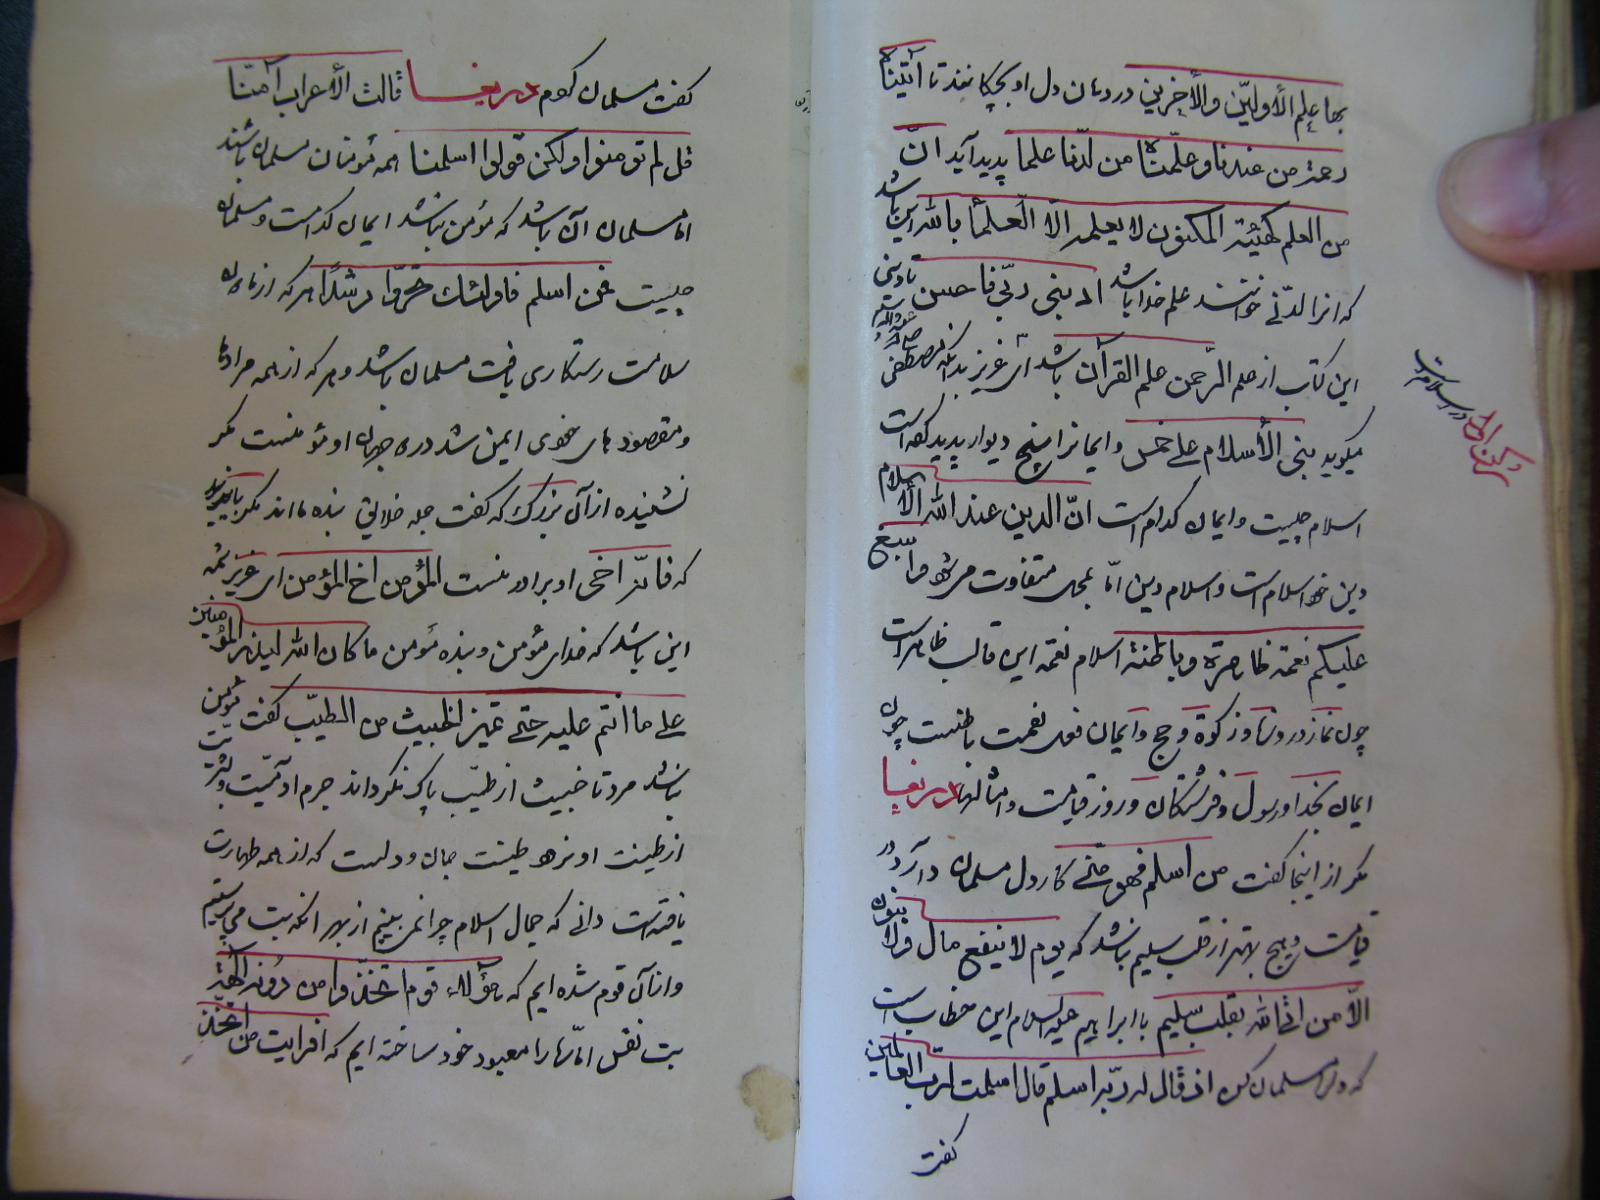 بها علم الأولین والأخرین در دهان دل او بچکانند تا آتیناه
رحمة من عندنا وعلمناه من لدنا علما پدید آید ان
من العلم کهیئة المکنون لا یعلمه الا العلماء بالله این باشد
که انرا لدنی خوانند علم خدا باشد ادبنی ربی فاحسن تادیبی
این کتاب از علم الرحمن علم القرآن باشد ای عزیز بدانکه مصطفی صلی الله علیه وآله
میکوید بنی الأسلام علی خمس وایمانرا پنج دیوار پدید کرده است
اسلام چیست وایمان کدام است ان الدین عند الله الا سلام
دین خود اسلام است واسلام دین اما بمحل متفاوت می شود واسبغ
علیکم نعمة ظاهرة وباطنة اسلام نعمة این قالب ظاهر است
چون نماز وروزه وزکوة وحج وایمان نعمت باطنست چون
ایمان بخدا ورسول وفرشتکان وروز قیامت وامثالها دریغا
مکر از اینجا کفت من اسلم فهو منی کار دل مسلمان دارد در
قیامت وهیچ بهتر از قلب سلیم نباشد که یوم لا ینفع مال ولا بنون
الا من اتی الله بقلب سلیم با ابراهیم علیه السلام این خطاب است
که دل مسلمان کن اذ قال له ربه اسلم قال اسلمت لرب العالمین
کفت
رکن اول در اسلامست
کفت مسلمان کردم دریغا قالت الأعراب آمنا
قل لم تؤمنوا ولکن قولوا اسلمنا همه مؤمنان مسلمان باشند
اما مسلمان آن باشد که مؤمن نباشد ایمان کدامست ومسلمان
چیست فمن اسلم فاولئک تحروا رشدا هر که از
سلامت رستکاری یافت مسلمان باشد وهر که از همه مرادها
ومقصودهای خودی ایمن شد در دو جهان او مؤمنست مکر
نشنیده از آن بزرک که کفت جمله خلائق بنده مااند مکر بایزید
که فانه اخی او برادر منست المؤمن اخ المؤمن ای عزیز شمه
این باشد که خدای مؤمن وبنده مؤمن ما کان الله لیذر المؤمنین
علی ما انتم علیه حتی یمیز الخبیث من الطیب کفت مؤمن
نباشد مرد تا خبیث از طیب پاک نکرداند جرم آدمیت وبشریت
از طینت او نزهد طینت جان ودلست که از همه طهارت
یافته است دانی که جمال اسلام چرا نمی بینیم از بهر انکه بت می پرستیم
واز آن قوم شده ایم که هؤلاء قومنا اتخذوا من دونه آلهة
بت نفس اماره را معبود خود ساخته ایم که افرایت من اتخذ